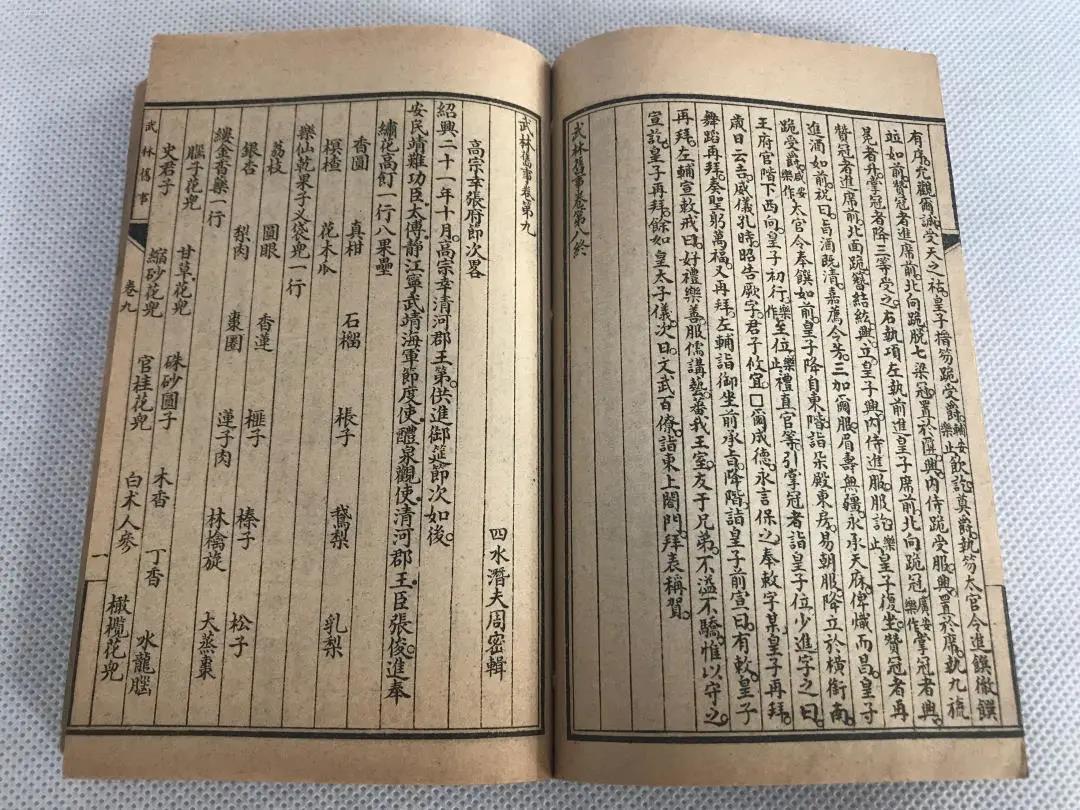 有序。允觀爾誠。受天之祜。皇子搢笏跪受爵。輔安樂止。飲訖奠爵。執笏。太官令進饌徹饌
竝如前。贊冠者進席前。北向跪脫七梁冠。置於匴。興。內侍跪受服。興。置於席。執九旒
冕者升。掌冠者降三等受之。右執項。左執前。進皇子席前。北向跪冠。廣安樂作。掌冠者興。
贊冠者進席前。北面跪。簪結紘。興立。皇子興。內侍進服。服訖。樂止。皇子復坐。贊冠者再
進酒如前。祝曰。旨酒既清。嘉薦令芳。三加爾服。眉壽無疆。永承天庥。俾熾而昌。皇子
跪受爵。咸安樂作。太官令奉饌如前。皇子降自東階。詣朵殿東房。易朝服。降立於橫街南。
王府官階下西向。皇子初行。樂作。至位。樂止。禮直官等引掌冠者詣皇子位。少進。字之曰
歲日云吉。威儀孔時。昭告厥字。君子攸宜。□爾成德。永言保之。奉敕字某。皇子再拜。
舞蹈再拜。奏聖躬萬福。又再拜。左輔詣御坐前承旨。降階詣皇子前。宣曰。有敕。皇子
再拜。左輔宣敕戒曰。好禮樂善。服儒講藝。蕃我王室。友于兄弟。不溢不驕。惟以守之。
宣訖。皇子再拜。餘如皇太子儀。次日文武百僚。詣東上閤門。拜表稱賀。
武林舊事卷第八終
武林舊事卷第九
四水潛夫周密輯
高宗幸張府節次畧
紹興二十一年十月。高宗幸清河郡王第。供進御筵節次如後。
安民靖難功臣。太傅。靜江寧武靖海軍節度使。醴泉觀使。清河郡王。臣張俊進奉
繡花高飣一行八果壘
香圓 真柑 石榴 棖子 鵝梨 乳梨
榠楂 花木瓜
樂仙乾果子叉袋兜一行
荔枝 圓眼 香蓮 榧子 榛子 松子
銀杏 梨肉 棗圈 蓮子肉 林檎旋 大蒸棗
縷金香藥一行
腦子花兜 甘草花兜 硃砂圓子 木香 丁香 水龍腦
史君子 縮砂花兜 官桂花兜 白朮人參 橄欖花兜
武林舊事 卷九 一